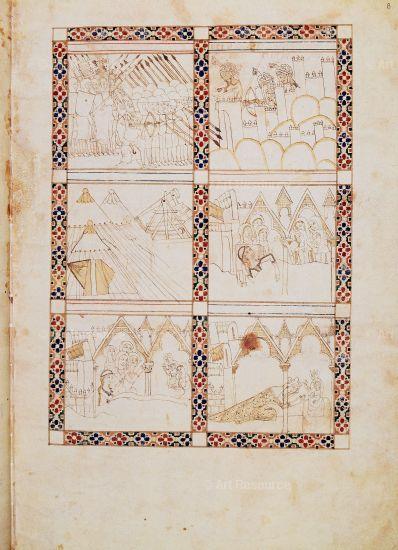 8
© Art Resource